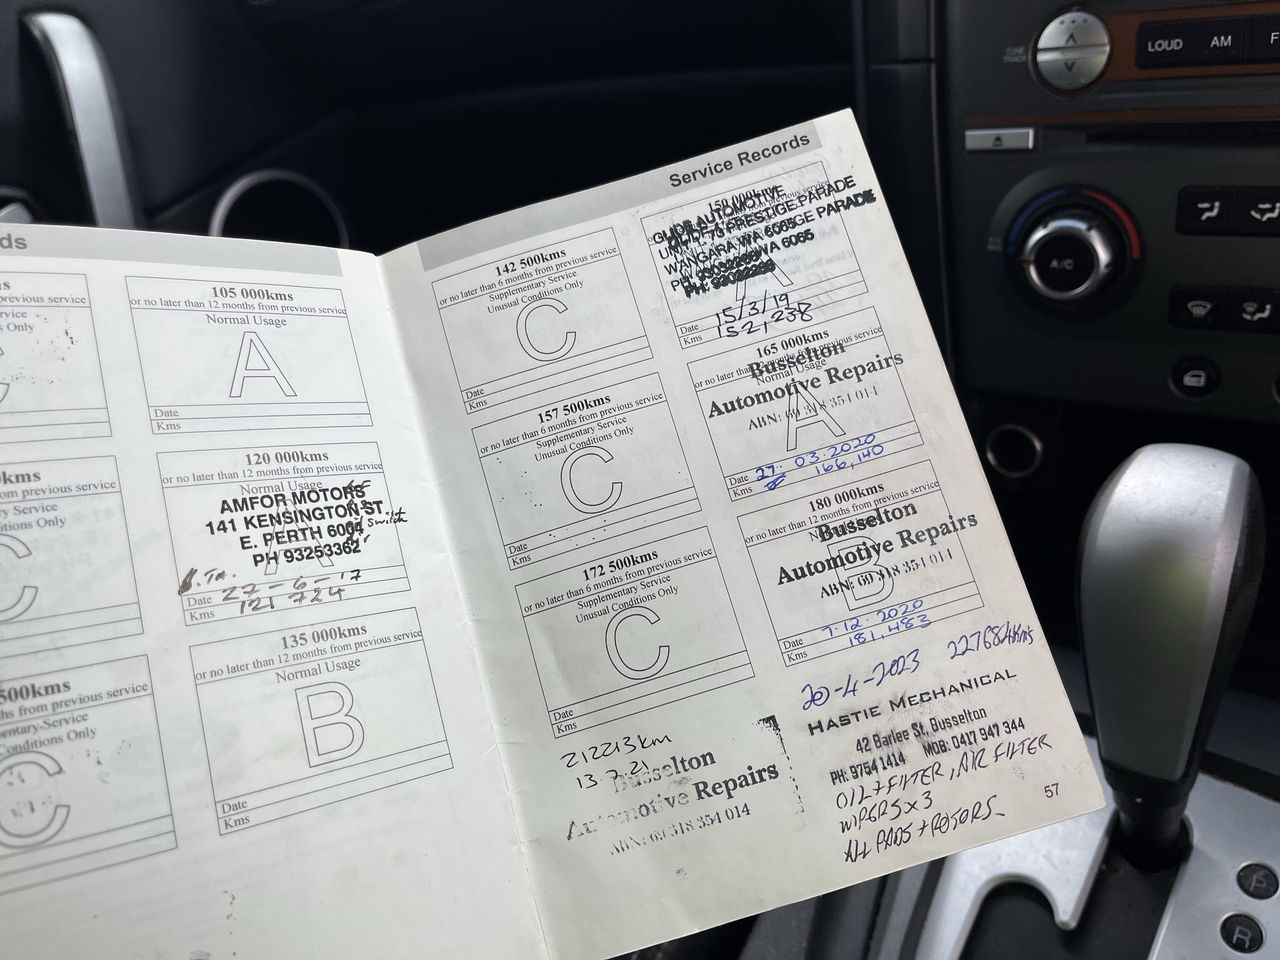 ds
ms
es Only
C
kms
m previous service
y Service
tions Only
C
500kms
hs from previous service
entary-Service
Conditions Only
C
105 000kms
or no later than 12 months from previous service
Normal Usage
A
Date
Kms
120 000kms
or no later than 12 months from previous service
Normal Usage
AMFOR MOTORS
141 KENSINGTON ST.
E. PERTH 6004
switch
PH 93253362
Date 27-6-17
Kms 121 724
135 000kms
or no later than 12 months from previous service
Normal Usage
B
Date
Kms
Service Records
142 500kms
or no later than 6 months from previous service
Supplementary Service
Unusual Conditions Only
C
Date
Kms
157 500kms
or no later than 6 months from previous service
Supplementary Service
Unusual Conditions Only
C
Date
Kms
172 500kms
or no later than 6 months from previous service
Supplementary Service
Unusual Conditions Only
C
Date
Kms
212213km
13.7.21
Busselton
Automotive Repairs
ABN: 69 318 354 014
150 000kms
AUTOMOTIVE
PRESTIGE PARADE
WANGARA WA 6065
A
Date 15/3/19
Kms 152,238
165 000kms
or no later than 12 months from previous service
Busselton
Normal Usage
Automotive Repairs
ABN: 69 318 354 014
A
Date 27.03.2020
Kms 166,140
180 000kms
or no later than 12 months from previous service
Busselton
Automotive Repairs
ABN: 69 318 354 014
B
Date 7.12.2020
Kms 181,483
20-4-2023 227684kms
HASTIE MECHANICAL
42 Barlee St, Busselton
PH: 9754 1414 MOB: 0417 947 344
OIL + FILTER, AIR FILTER
WIPERS x 3
ALL PADS + ROTORS
57
TUNE
TRACK
LOUD
AM
F
A/C
P
R